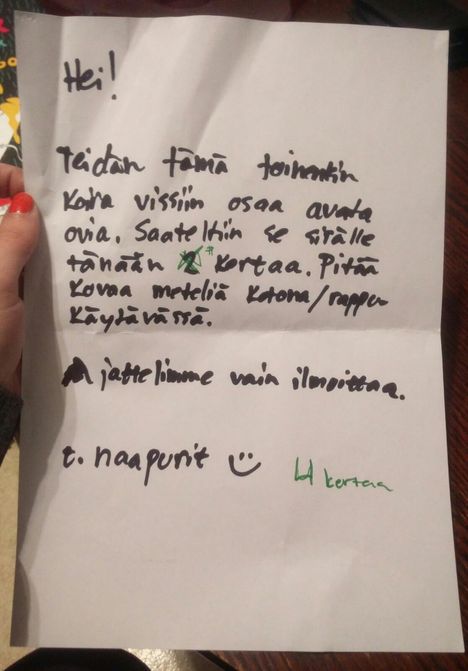 Hei!
Teidän tämä toinenkin
koira vissiin osaa avata
ovia. Saateltiin se sisälle
tänään * kertaa. Pitää
kovaa meteliä kotona/rappu
käytävässä.
ajattelimme vain ilmoittaa.
t. naapurit :)
4 kertaa